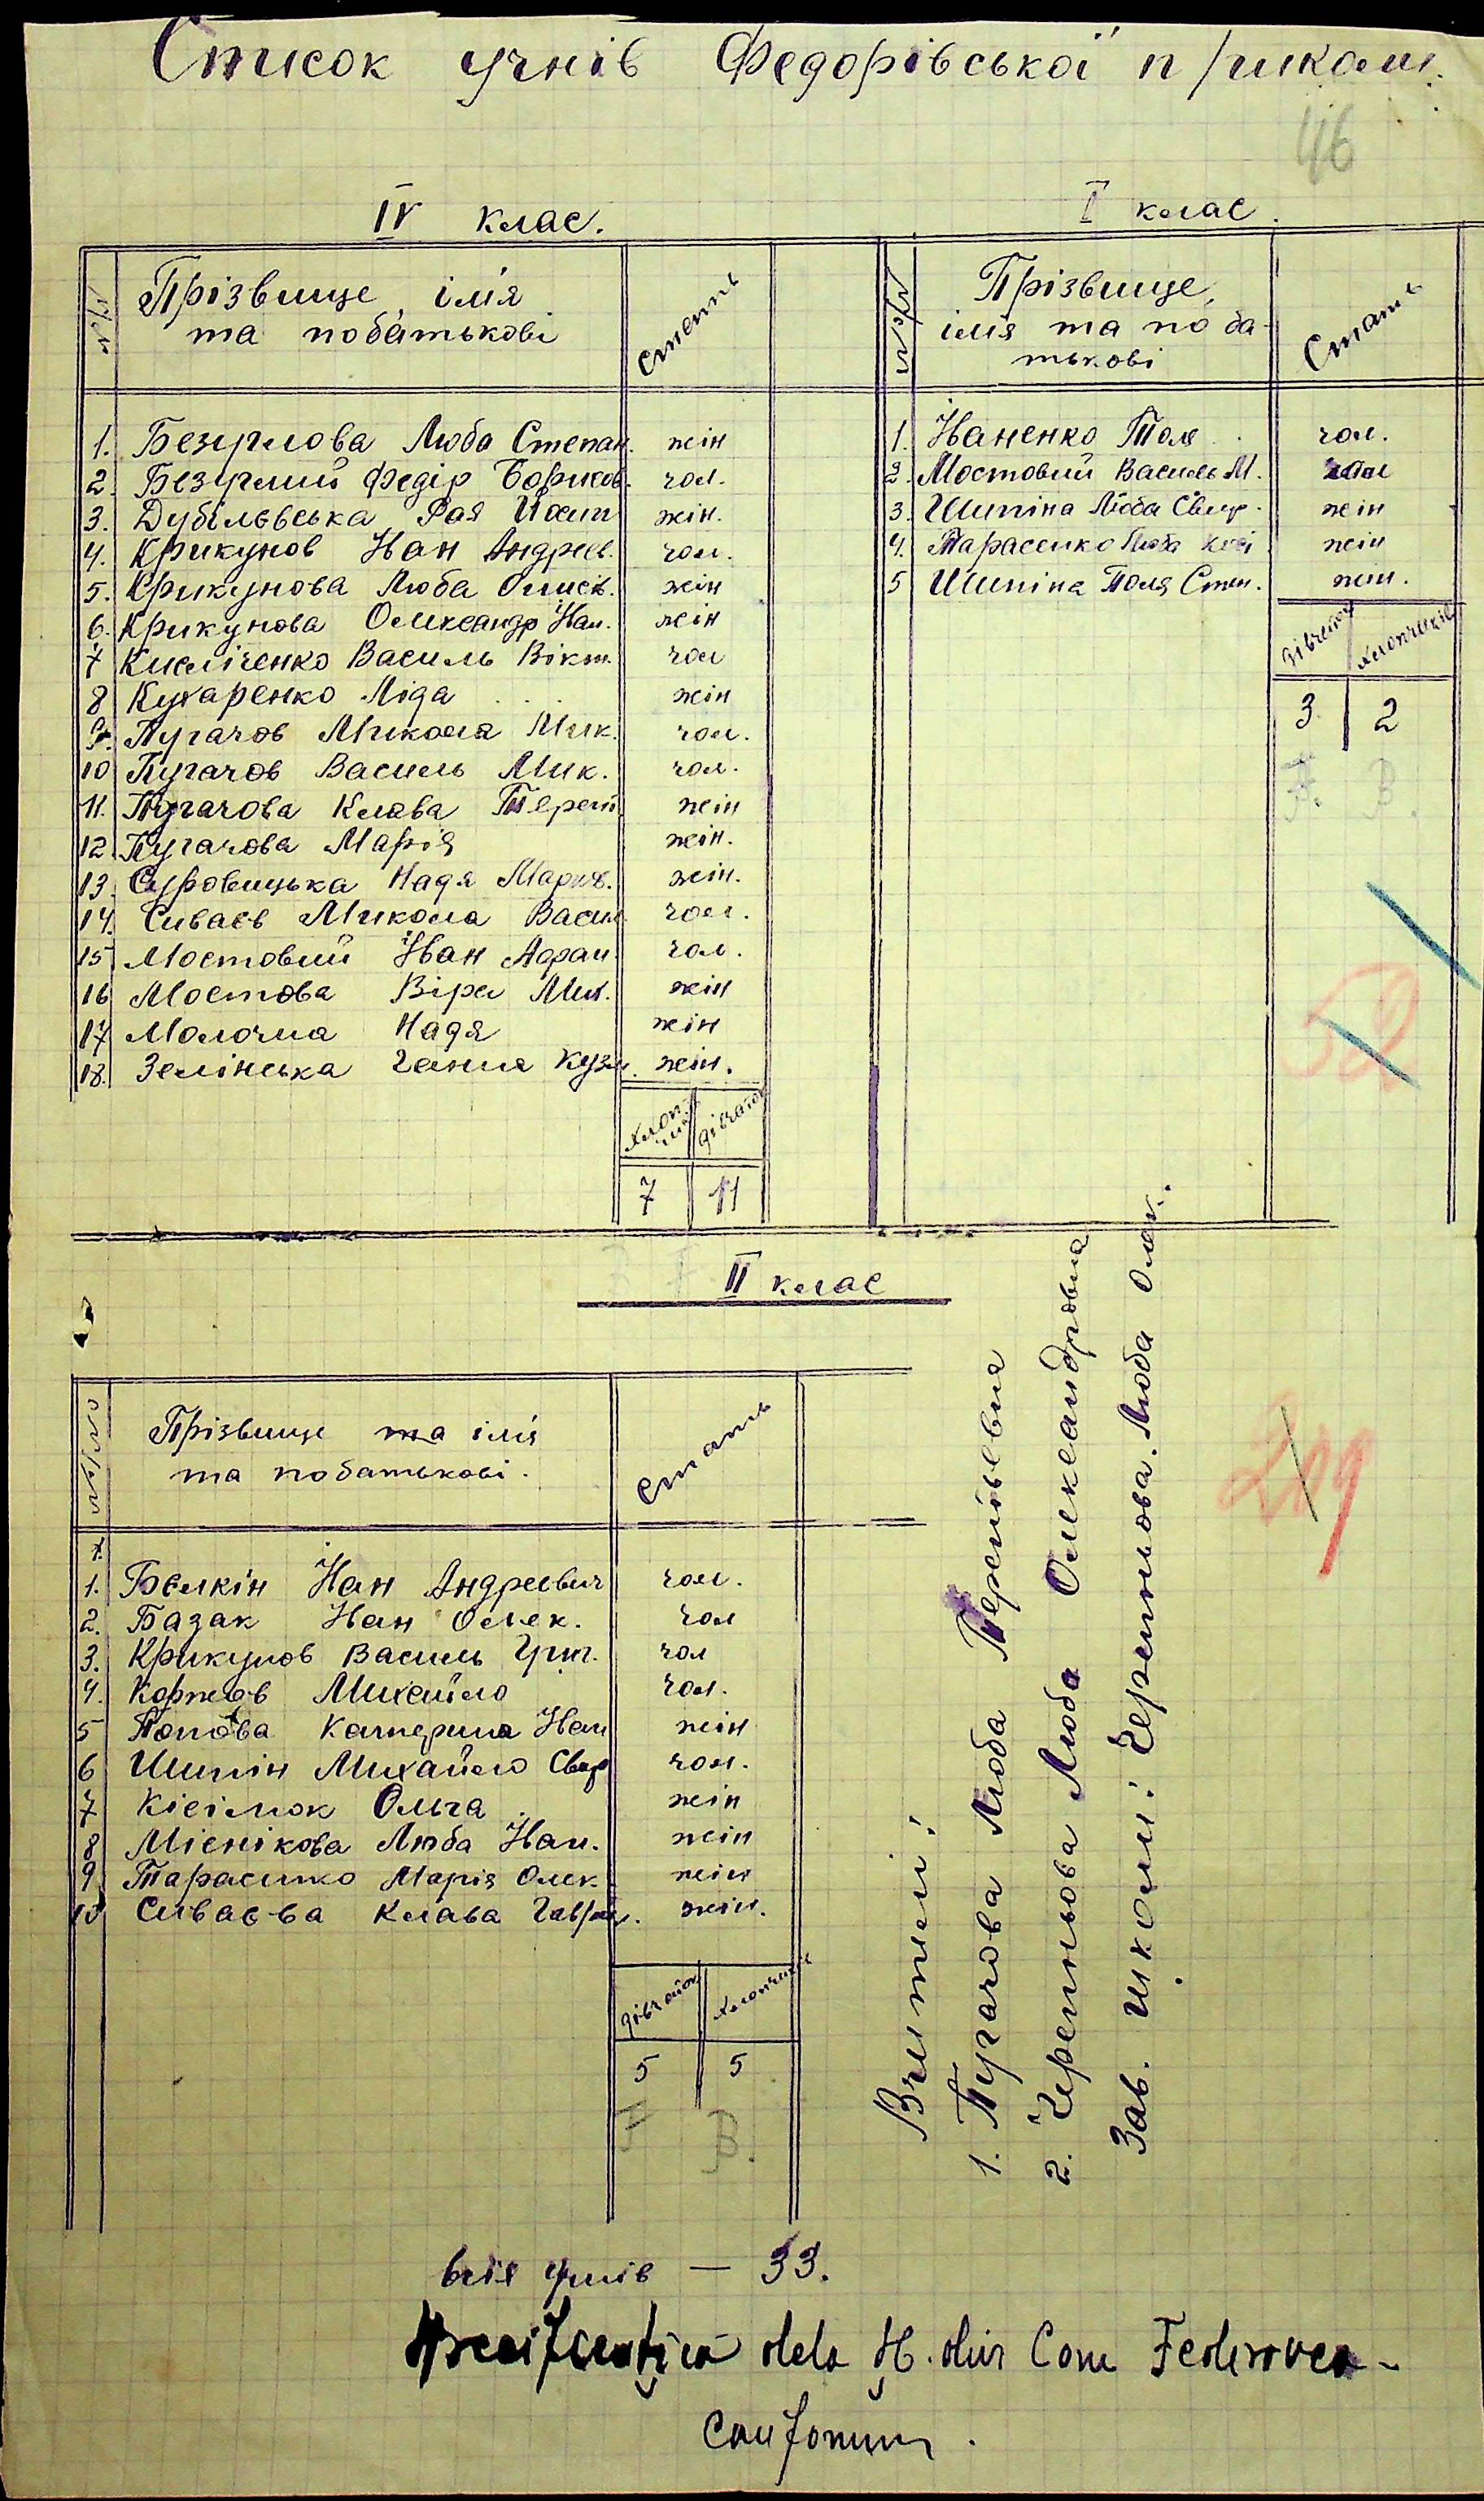 Список учнів Федорівської п/шкали.
46
IV клас.
№ п/п
Прізвище, ім'я
та побатькові
стать
1. Безуглова Люба Степан. жін
2. Безуглий Федір Борисов. чол.
3. Дубільвська Рая жін.
4. Крикунов Іван Андреєв. чол.
5. Крикунова Люба жін
6. Крикунова Олександр Іван. жін
7 Василь Вікт. чол
8 Кухаренко Ліда жін
9. Пугачов Микола Мик. чол.
10 Пугачов Василь Мик. чол.
11. Пугачова Клава Терент. жін
12. Пугачова Марія жін.
13. Суровицька Надя жін.
14. Сиваєв Микола Васил. чол.
15. Мостовий Іван чол.
16 Мостова Віра Мих. жін
17 Молочна Надя жін
18. Зелінська Ганна Кузм. жін.
хлопчиків дівчаток
7 11
I клас.
№ п/п
Прізвище,
ім'я та по ба-
тькові
Стать
1. Іваненко Толя чол.
2. Мостовий Василь М. чол
3. Шипіна Люба Свир. жін
4. Тарасенко Люба жін
5 Шипіна Поля Степ. жін.
дівчаток хлопчиків
3 2
F. B.
52
II клас
№ п/п
Прізвище та ім'я
та побатькові.
стать
1. Белкін Іван Андреєвич чол.
2. Базак Іван Олек. чол
3. Крикунов Василь Григ. чол
4. Михайло чол.
5 Попова Катерина Іван жін
6 Шипін Михайло Свир чол.
7 Кісілюк Ольга жін
8 Мієнікова Люба Іван. жін
9 Тарасенко Марія Олек. жін
10 Сиваєва Клава Гаврил. жін.
дівчаток хлопчиків
5 5
F B.
Вчителі:
1. Пугачова Люба Терентьевна
2. Черетньова Люба Олександровна
Зав. школи: Черетньова Люба Олек.
209
всіх учнів — 33.
dela Com Federovca-